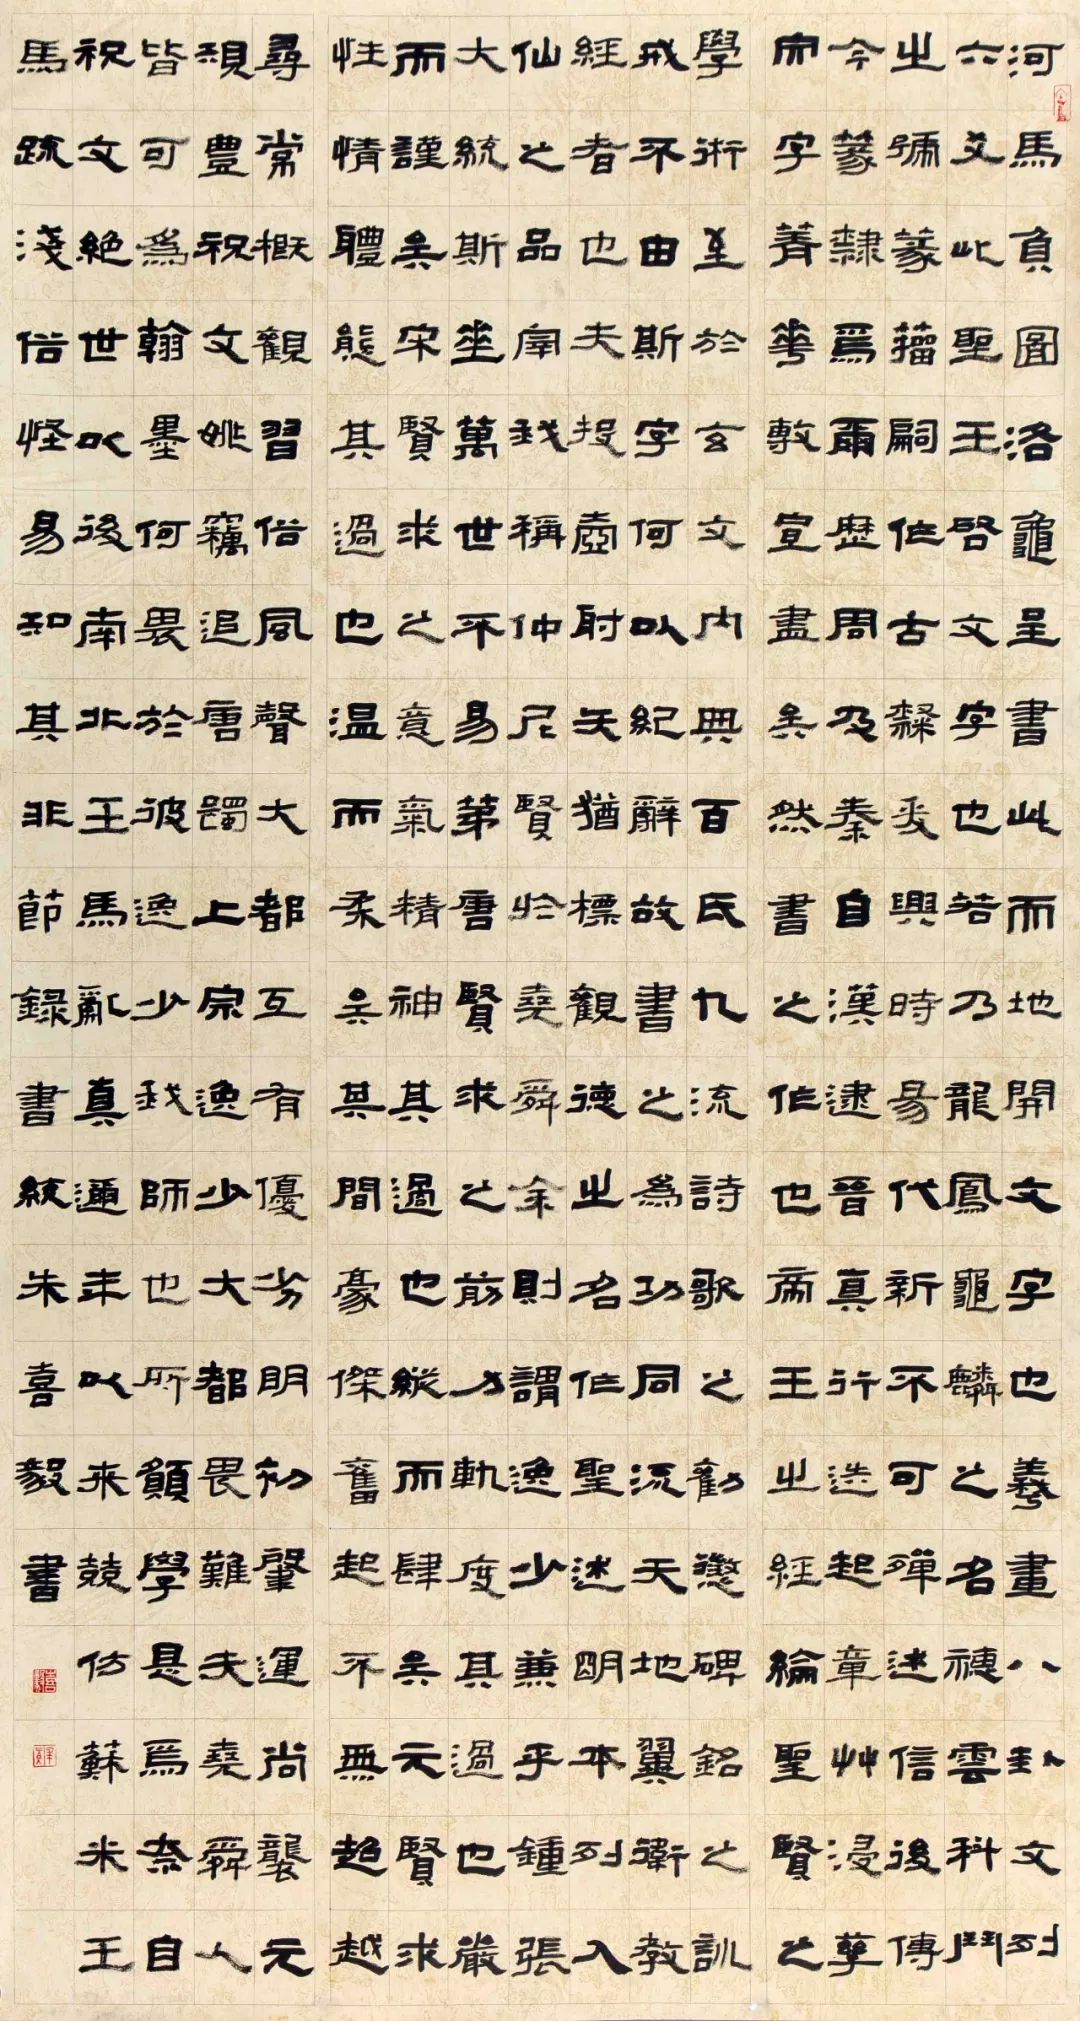 河馬負圖洛龜呈書此而地開文字也羲畫八卦文列
六爻此聖王啓文字也若乃龍鳳龜麟之名穗雲科鬥
之號篆籀嗣作古隸爰興時易代新不可殫述信後傳
今篆隸焉爾歷周及秦自漢逮晉真行迭起章艸浸孳
而字菁華敷宣盡矣然書之作也帝王之經綸聖賢之
學術至於玄文內典百氏九流詩歌之勸懲碑銘之訓
戒不由斯字何以紀辭故書之為功同流天地翼衛教
經者也夫投壺射矢猶標觀德之名作聖述明本列入
仙之品宰我稱仲尼賢於堯舜余則謂逸少兼乎鍾張
大統斯坐萬世不易第唐賢求之筋力軌度其過也嚴
而謹矣宋賢求之意氣精神其過也縱而肆矣元賢求
性情體態其過也溫而柔矣其間豪傑奮起不無超越
尋常概觀習俗風聲大都互有優劣明初肇運尚襲元
規豐祝文姚竊追唐躅上宗逸少大都畏難夫堯舜人
皆可為翰墨何畏於彼逸少我師也所願學是焉奈自
祝文絕世以後南北王馬亂真邇年以來競仿蘇米王
馬疏淺俗怪易知其非節錄書統朱喜毅書